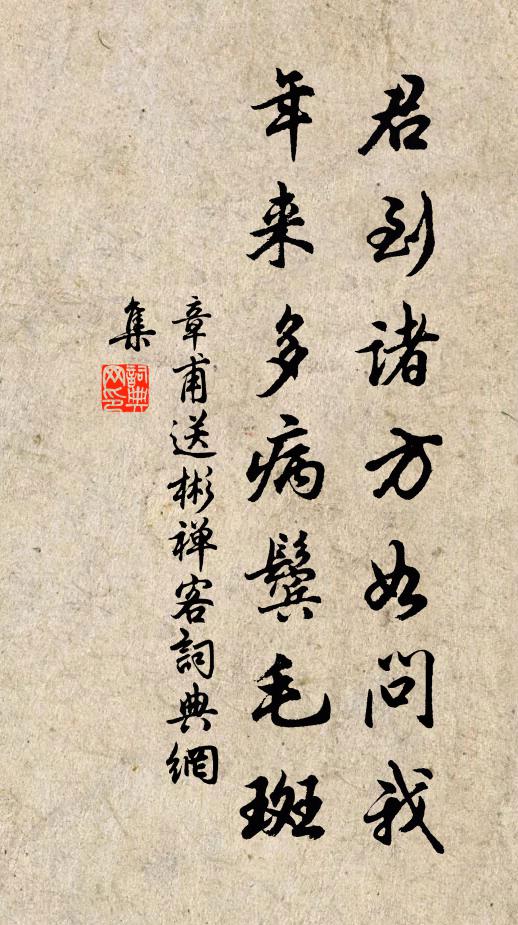 君到诸方如问我
年来多病鬓毛斑
章甫送彬禅客詞典網
集
詞典
网印